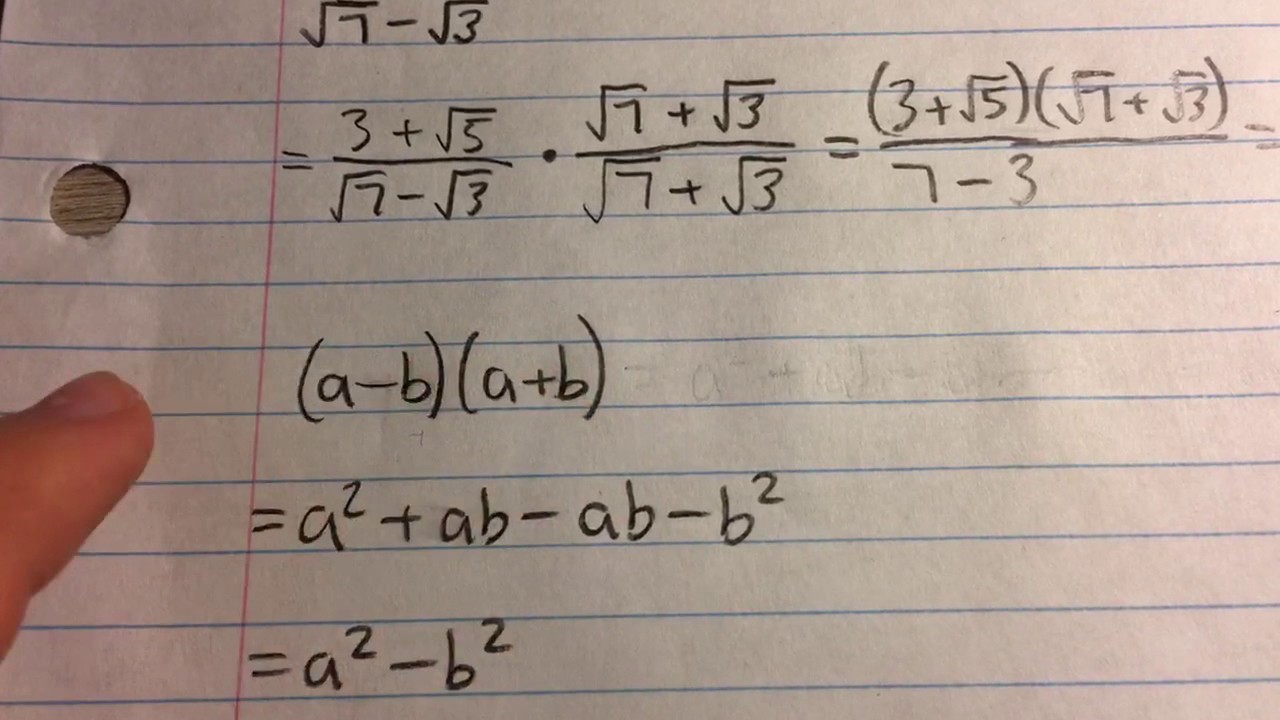 √7 - √3
= (3 + √5)/(√7 - √3) · (√7 + √3)/(√7 + √3) = ((3 + √5)(√7 + √3))/(7 - 3) =
(a - b)(a + b)
= a² + ab - ab - b²
= a² - b²